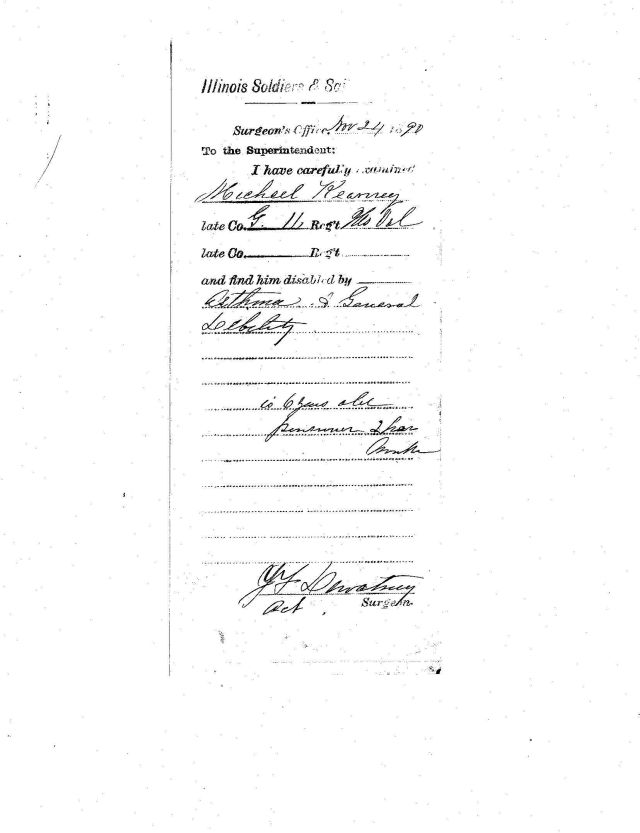 Illinois Soldiers & Sai
Surgeon's Office, Nov 24 1890
To the Superintendent:
I have carefully examined
Michael Kearney
late Co. G. 11 Reg't Mo Vol
late Co. Reg't
and find him disabled by
Asthma & General
Debility
is 6 years old
pensioner
Act Surgeon.